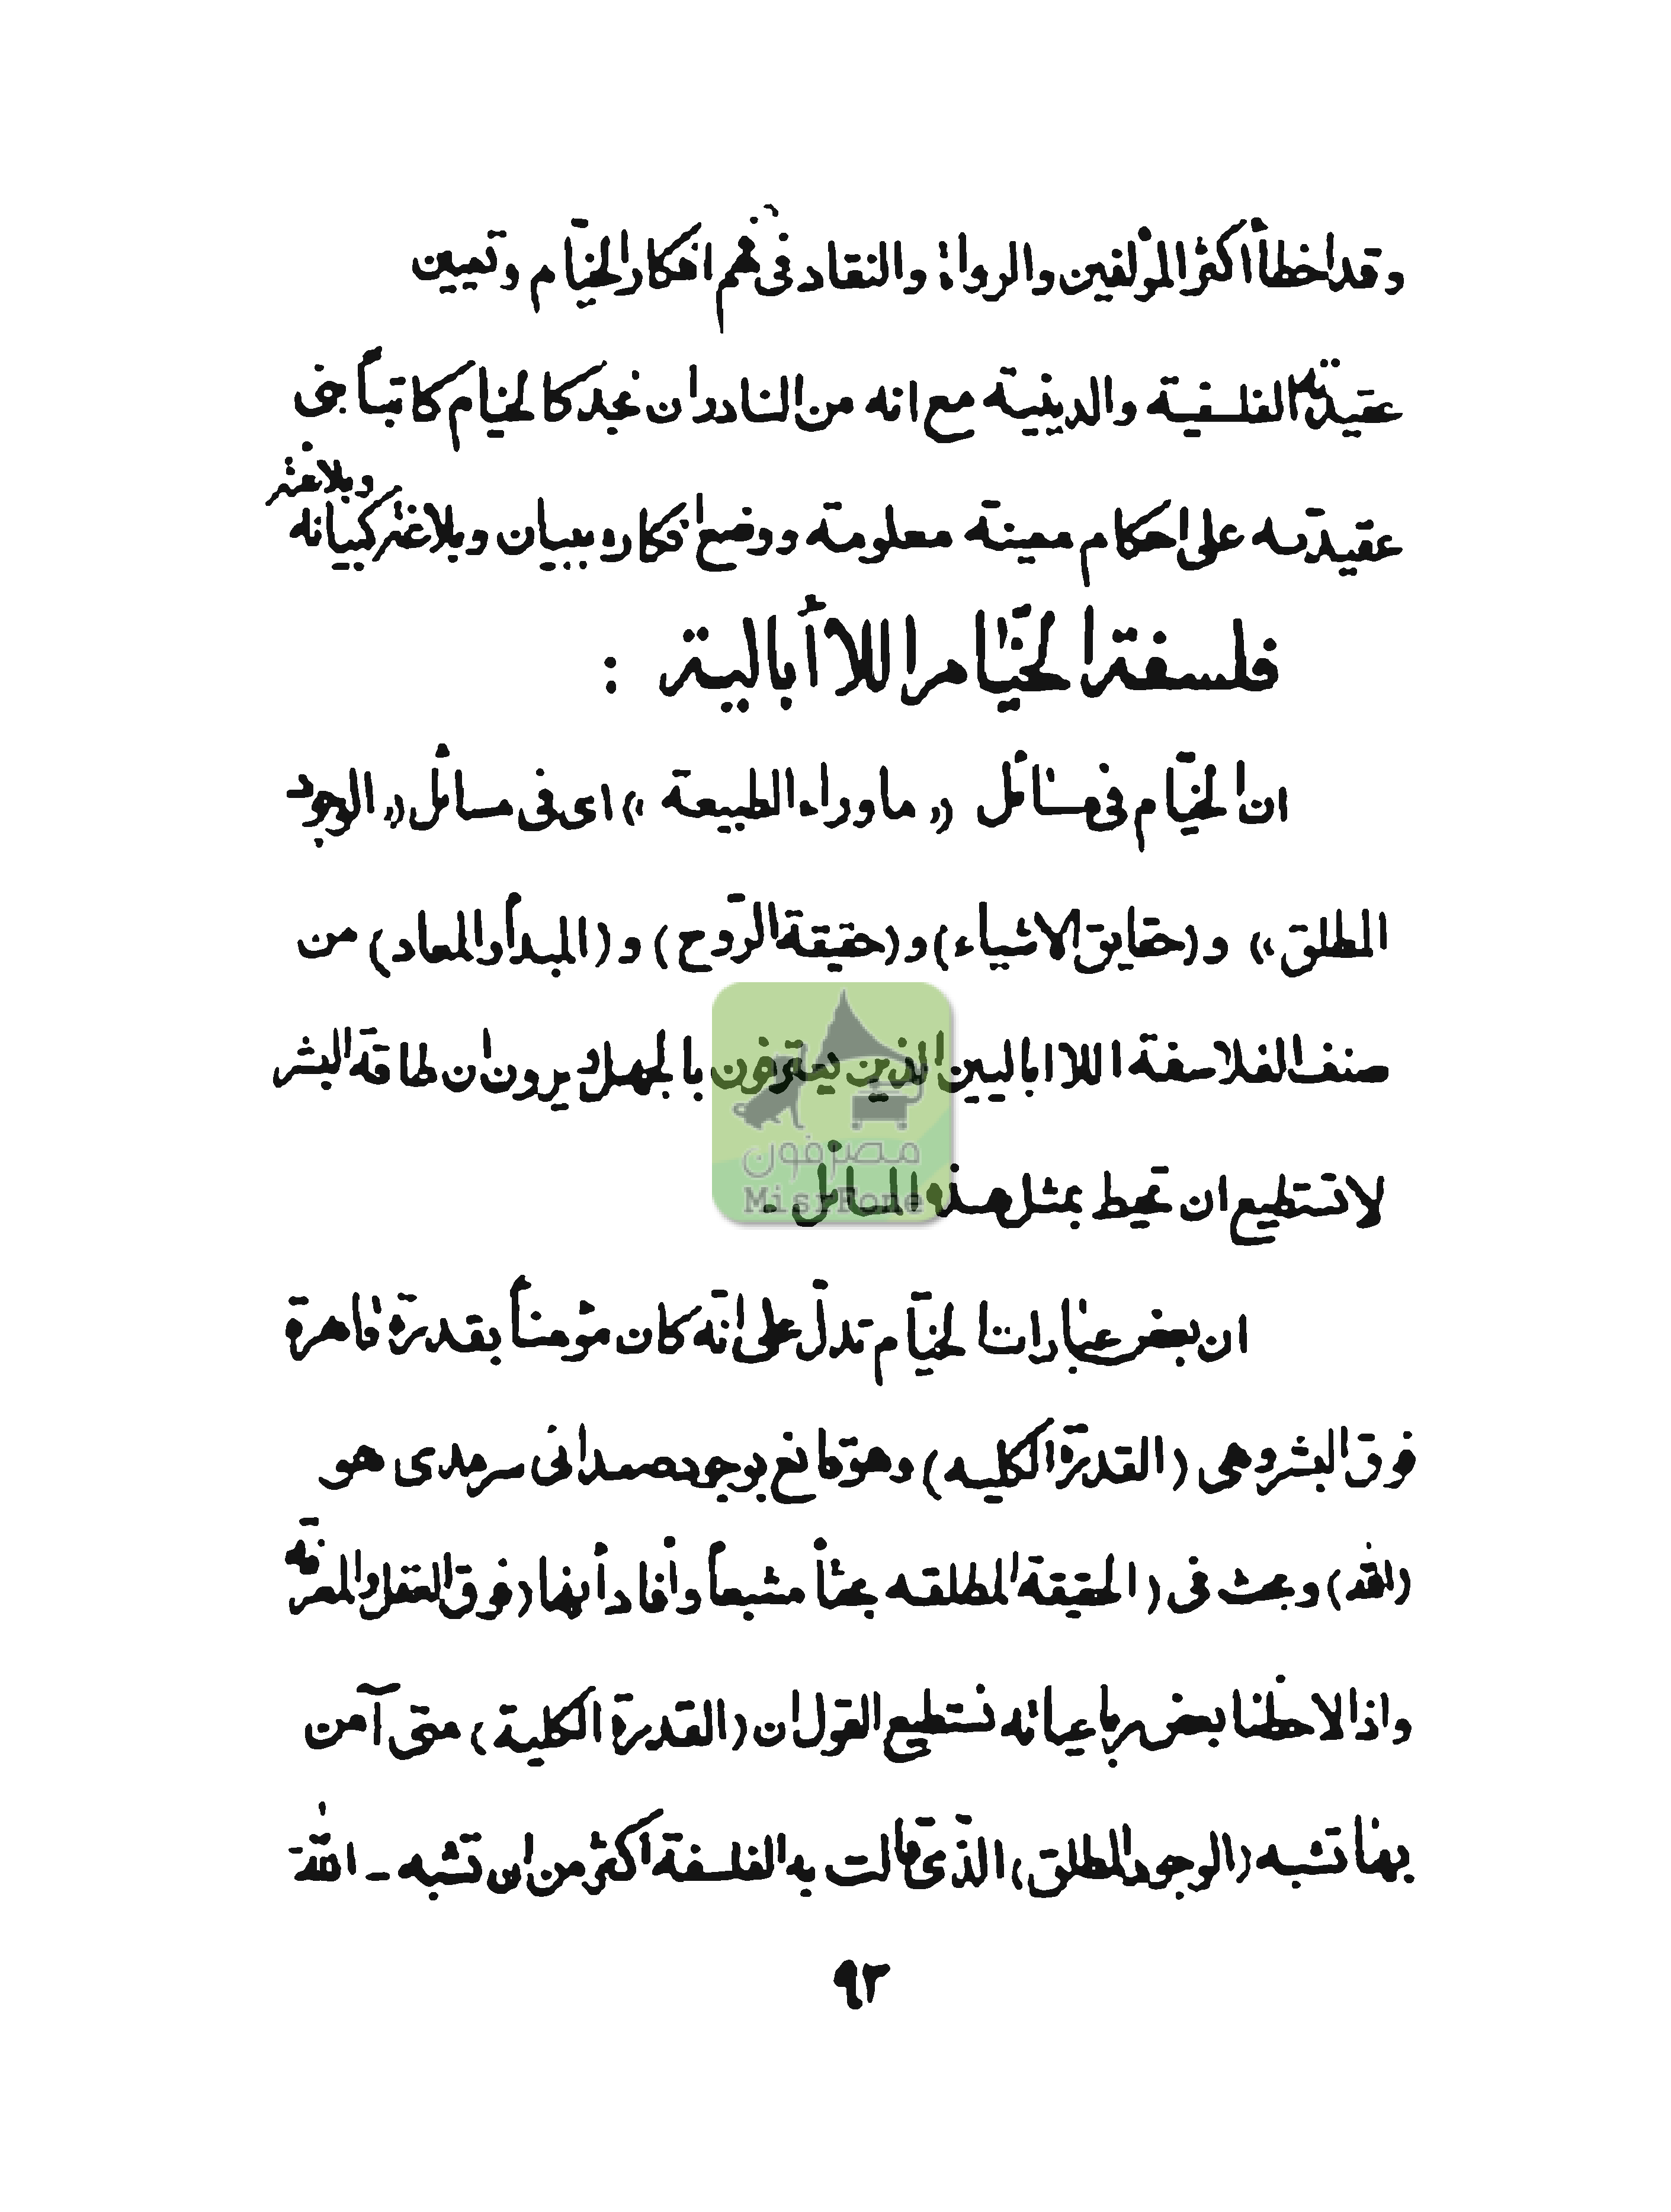 وقد اخطأ اكثر المؤلفين والرواة والنقاد فى فهم افكار الخيّام وتعيين
عقيدته الفلسفية والدينية مع انه من النادر ان نجد كالخيام كاتباً بنى
عقيدته على احكام معينة معلومة ووضع افكاره ببيان وبلاغة كبيانه
وبلاغته
فلسفة الخيّام اللاأبالية :
ان الخيّام فى مسائل « ماوراء الطبيعة » اى فى مسائل « الوجود
المطلق » و (حقايق الاشياء) و (حقيقة الرّوح) و (المبدأ والمعاد) من
صنف الفلاسفة اللااباليين الذين يعترفون بالجهل ويرون ان طاقة البشر
لاتستطيع ان تحيط بمثل هذه المسائل .
مصرفون
MisrFone
ان بعض عبارات الخيّام تدلّ على انّه كان مؤمناً بقدرة قاهرة
فوق البشر وهى (القدرة الكليه) وهو قانع بوجود صمدانى سرمدى هو
(الله) وبحث فى (الحقيقة المطلقه بحثاً مشبعاً وأفاد أنها (فوق العقل والمعرفة
واذا لاحظنا بعض رباعياته نستطيع القول ان (القدرة الكلية) متى آمن
بها تشبه (الوجود المطلق) الذّى قالت به الفلسفة اكثر من ان تشبه - اللّه
٩٣